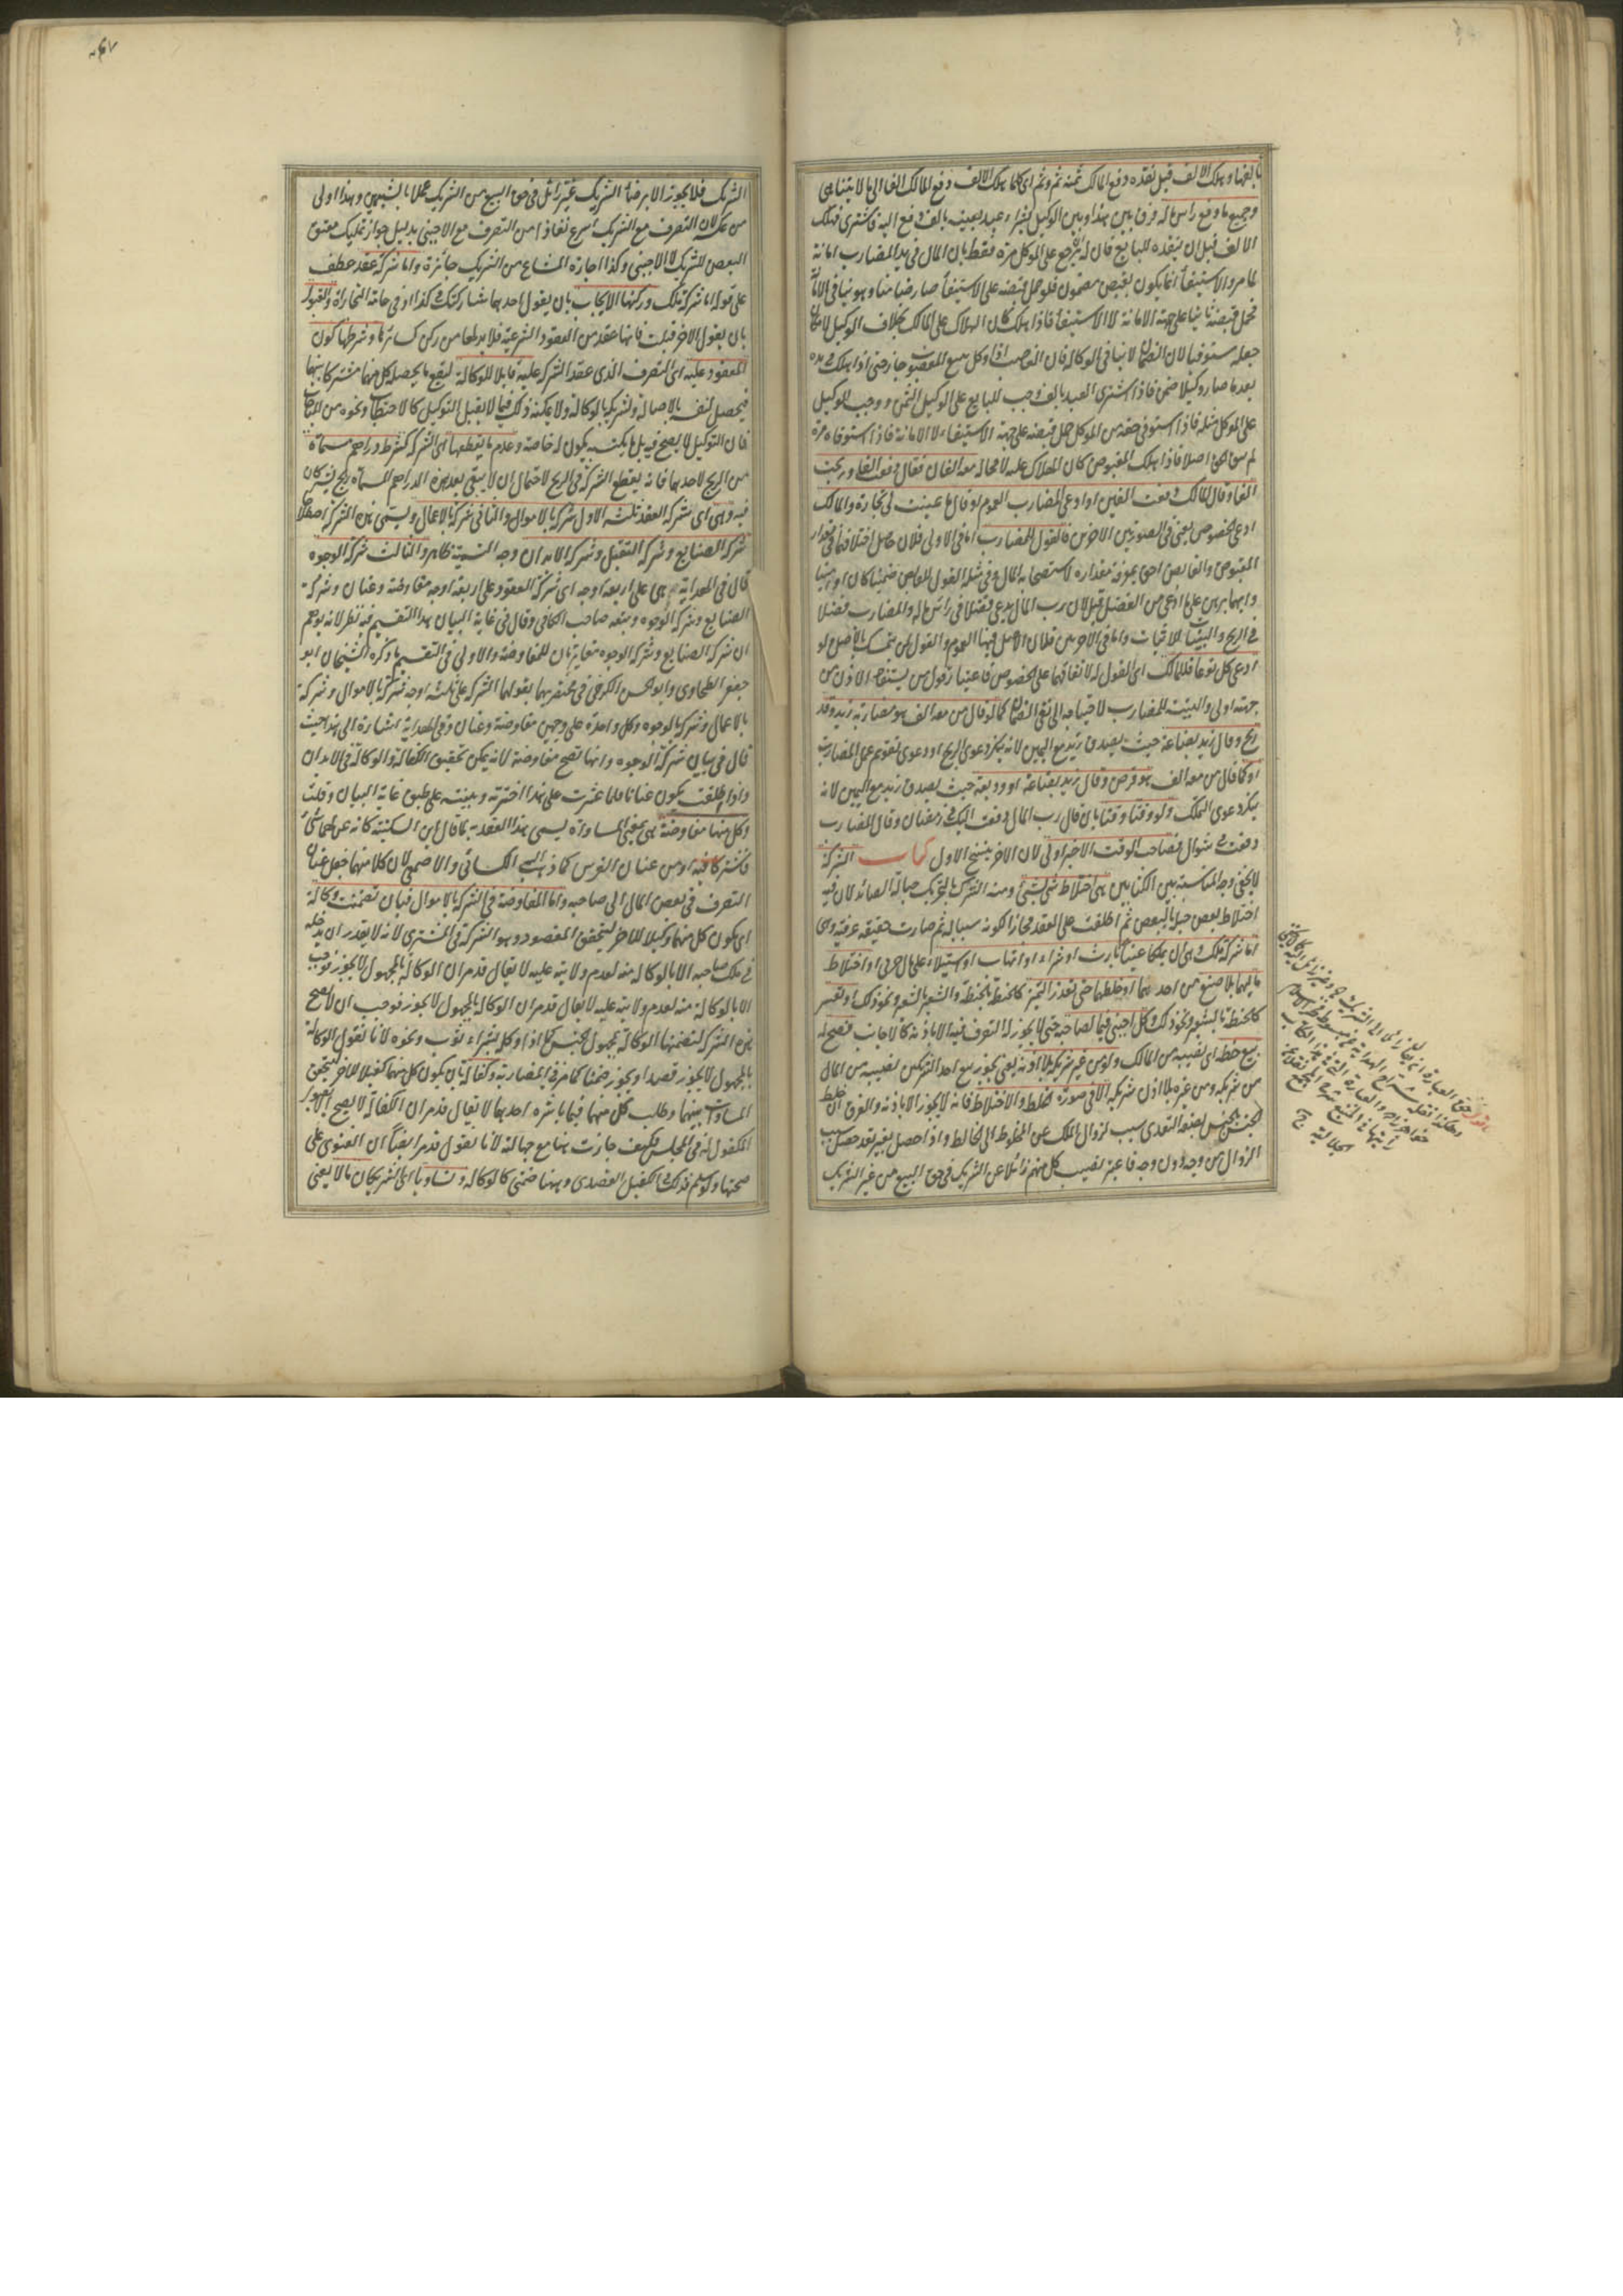 بالفها وهلك الالف قبل نقده دفع المالك ثمنه ثم وثم اى كلما هلك الالف دفع المالك الفا الى ما لا يتناهى
وجميع ما دفع راس ماله فرق بين هذا وبين الوكيل بشراء عبد بعينه بالف دفع اليه فاشترى فهلك
الالف قبل ان ينقده للبايع فان له يرجع على الموكل مرة فقط بان المال فى يد المضارب امانة
لما مر والاستيفاء انما يكون بقبض مضمون فلو حمل قبضه على الاستيفاء صار ضامنا وهو ينافى الامانة
فحمل قبضه ثانيا على جهة الامانة لا الاستيفاء فاذا هلك كان الهلاك على المالك بخلاف الوكيل لامكان
جعله مستوفيا لان الضمان لا ينافى الوكالة فان الغاصب اذا وكل ببيع المغصوب جاز حتى اذا هلك فى يده
بعد ما صار وكيلا ضمن فاذا اشترى العبد بالف وجب للبايع على الوكيل الثمن ووجب للوكيل
على الموكل مثله فاذا استوفى حقه من الموكل حمل قبضه على جهة الاستيفاء لا الامانة فاذا استوفاه مرة
لم يبق له حق اصلا فاذا هلك المقبوض كان الهلاك عليه لا محالة معه الفان فقال دفعت الى الفا وربحت
الفا وقال المالك دفعت الفين او ادعى المضارب العموم او قال ما عينت لى تجارة والمالك
ادعى الخصوص يعنى فى الصورتين الاخريين فالقول للمضارب اما فى الاولى فلان حاصل اختلافهما فى مقدار
المقبوض والقابض احق بمعرفة مقداره لاستصحابه المال وفى مثله القول للقابض ضمينا كان او امينا
وايهما برهن على ما ادعى من الفضل قبل لان رب المال يدعى فضلا فى راس ماله والمضارب فضلا
فى الربح والبينات للاثبات واما فى الاخريين فلان الاصل فيها العموم والقول لمن تمسك بالاصل ولو
ادعى كل نوعا فللمالك اى القول له لاتفاقهما على الخصوص فاعتبار قول من يستفاد الاذن من
جهته اولى والبينة للمضارب لاحتياجه الى نفى الضمان كما لو قال من معه الف هو مضاربة زيد وقد
ربح وقال زيد بضاعة حيث يصدق زيد مع اليمين لانه ينكر دعوى الربح او دعوى تقويم عمل المضارب
او كما قال من معه الف هو قرض وقال زيد بضاعة او وديعة حيث يصدق زيد مع اليمين لانه
ينكر دعوى التملك ولو وقتا وقتا بان قال رب المال دفعت اليك فى رمضان وقال المضارب
دفعت فى شوال فصاحب الوقت الاخير اولى لان الاخر ينسخ الاول كتاب الشركة
لا يخفى وجه المناسبة بين الكتابين هى اختلاط شئ بشئ ومنه الشرك بالتحريك حبالة الصائد لان فيه
اختلاط بعض حبله بالبعض ثم اطلقت على العقد مجازا لكونه سببا له ثم صارت حقيقة عرفية وهى
اما شركة ملك وهى ان يملكا عينا بارث او شراء او اتهاب او استيلاء على مال حربى او اختلاط
ماليهما بلا صنع من احدهما او خلطهما حتى تعذر التميز كالحنطة بالحنطة والشعير بالشعير ونحو ذلك او تعسر
كالحنطة بالشعير ونحو ذلك وكل اجنبى فيما لصاحبه حتى لا يجوز له التصرف فيه الا باذنه كالاجانب فصح له
بيع حظه اى نصيبه من المالك ولو من غير شريكه بلا اذنه يعنى يجوز بيع احد الشريكين نصيبه من المال
من شريكه ومن غيره بلا اذن شريكه الا فى صورة الخلط والاختلاط فانه لا يجوز الا باذنه والفرق ان خلط
الجنس بالجنس بصفة التعدى سبب لزوال الملك عن المخلوط الى الخالط واذا حصل بغير تعد حصل سبب
الزوال من وجه دون وجه فاعتبر نصيب كل منهم زائلا عن الشريك فى حق البيع من غير الشريك
الشريك فلا يجوز الا برضاء الشريك غير زائل فى حق البيع من الشريك عملا بالشبهين وهذا اولى
من عكسه لان التصرف مع الشريك اسرع نفاذا من التصرف مع الاجنبى بدليل جواز تمليك معتق
البعض للشريك لا الاجنبى وكذا اجارة المشاع من الشريك جائزة واما شركة عقد عطف
على قوله اما شركة ملك وركنها الايجاب بان يقول احدهما شاركتك فى كذا او فى عامة التجارات والقبول
بان يقول الاخر قبلت فانها عقد من العقود الشرعية فلا بد لها من ركن كسائرها وشرطها كون
المعقود عليه اى التصرف الذى عقد الشركة عليه قابلا للوكالة ليقع ما يحصله كل منهما مشتركا بينهما
فيحصل لنفسه بالاصالة ولشريكه بالوكالة ولا يمكنه ذلك فيما لا يقبل التوكيل كالاحتطاب ونحوه من المباحات
فان التوكيل لا يصح فيه بل ما يكسبه يكون له خاصة وعدم ما يقطعها اى الشركة كشرط دراهم مسماة
من الربح لاحدهما فانه يقطع الشركة فى الربح لاحتمال ان لا يبقى بعد هذه الدراهم المسماة ربح يشتركان
فيه وهى اى شركة العقد ثلثة الاول شركة بالاموال والثانى شركة بالاعمال وتسمى هذه الشركة اصطلاحا
شركة الصنايع وشركة التقبل وشركة الابدان وجه التسمية ظاهر والثالث شركة الوجوه
قال فى الهداية هى على اربعة اوجه اى شركة العقود على اربعة اوجه مفاوضة وعنان وشركة
الصنايع وشركة الوجوه وتبعه صاحب الكافى وقال فى غاية البيان هذا التقسيم فيه نظر لانه يوهم
ان شركة الصنايع وشركة الوجوه مغايرتان للمفاوضة والاولى فى التقسيم ما ذكره الشيخان ابو
جعفر الطحاوى وابو الحسن الكرخى فى مختصريهما بقولهما الشركة على ثلثة اوجه شركة بالاموال وشركة
بالاعمال وشركة بالوجوه وكل واحدة على وجهين مفاوضة وعنان وفى الهداية اشارة الى هذا حيث
قال فى بيان شركة الوجوه وانها تصح مفاوضة لانه يمكن تحقيق الكفالة والوكالة فى الابدان
واذا اطلقت تكون عنانا فلما عثرت على هذا اخترته وبينته على طبق غاية البيان وقلت
وكل منها مفاوضة هى بمعنى المساواة يسمى هذا العقد به كما قال ابن السكيت كانه عن لهما شئ
فاشتركا فيه او من عنان الفرس كما ذهب اليه الكسائى والاصمعى لان كلا منهما جعل عنان
التصرف فى بعض المال الى صاحبه واما المفاوضة فى الشركة بالاموال فبان تضمنت وكالة
اى يكون كل منهما وكيلا للاخر ليتحقق المقصود وهو الشركة فى المشترى لانه لا يقدر ان يدخله
فى ملك صاحبه الا بالوكالة منه لعدم ولايته عليه لا يقال قد مر ان الوكالة بالمجهول لا يجوز فوجب
الا بالوكالة منه لعدم ولايته عليه لا يقال قد مر ان الوكالة بالمجهول لا يجوز فوجب ان لا يصح
هذه الشركة لتضمنها الوكالة بمجهول الجنس كما اذا وكله بشراء ثوب ونحوه لانا نقول الوكالة
بالمجهول لا يجوز قصدا ويجوز ضمنا كما مر فى المضاربة وكفالة بان يكون كل منهما كفيلا للاخر ليتحقق
المساواة بينهما وطلب كل منهما فيما باشره احدهما لا يقال قد مر ان الكفالة لا يصح الا بقبول
المكفول له فى المجلس فكيف جازت هنا مع جهالته لانا نقول قد مر ايضا ان الفتوى على
صحتها ولو سلم فذلك فى الكفيل القصدى وههنا ضمنى كالوكالة وتساويا اى الشريكان مالا يعنى